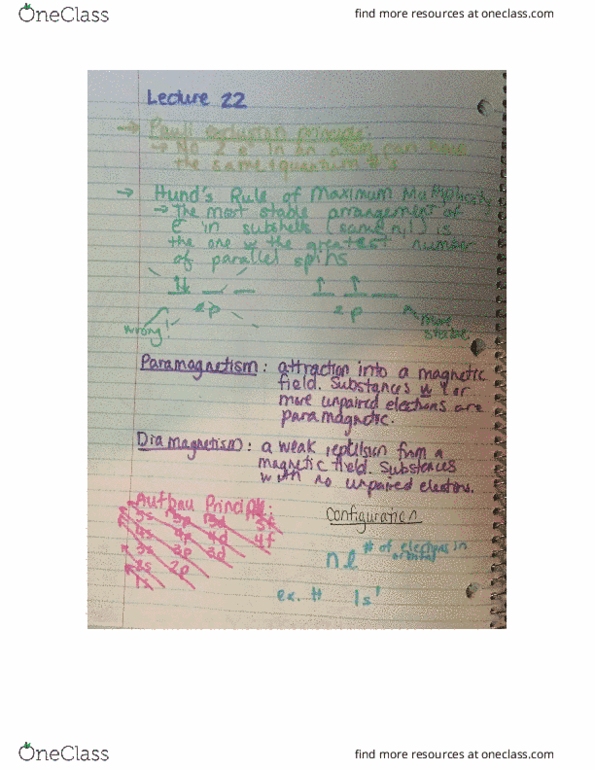 OneClass
find more resources at oneclass.com
Lecture 22
→ Pauli exclusion principle:
→ No 2 e⁻ in an atom can have
the same 4 quantum #'s
→ Hund's Rule of Maximum Multiplicity
→ The most stable arrangement of
e⁻ in subshells (same n,l) is
the one w the greatest number
of parallel spins
2p
2p
wrong!
more
stable
Paramagnetism: attraction into a magnetic
field. Substances w 1 or
more unpaired electrons are
paramagnetic.
Diamagnetism: a weak repulsion from a
magnetic field. Substances
with no unpaired electrons.
Aufbau Principle:
5s 5p 5d 5f
4s 4p 4d 4f
3s 3p 3d
2s 2p
1s
Configuration
nl # of electrons in
orbital
ex. H 1s¹
OneClass
find more resources at oneclass.com